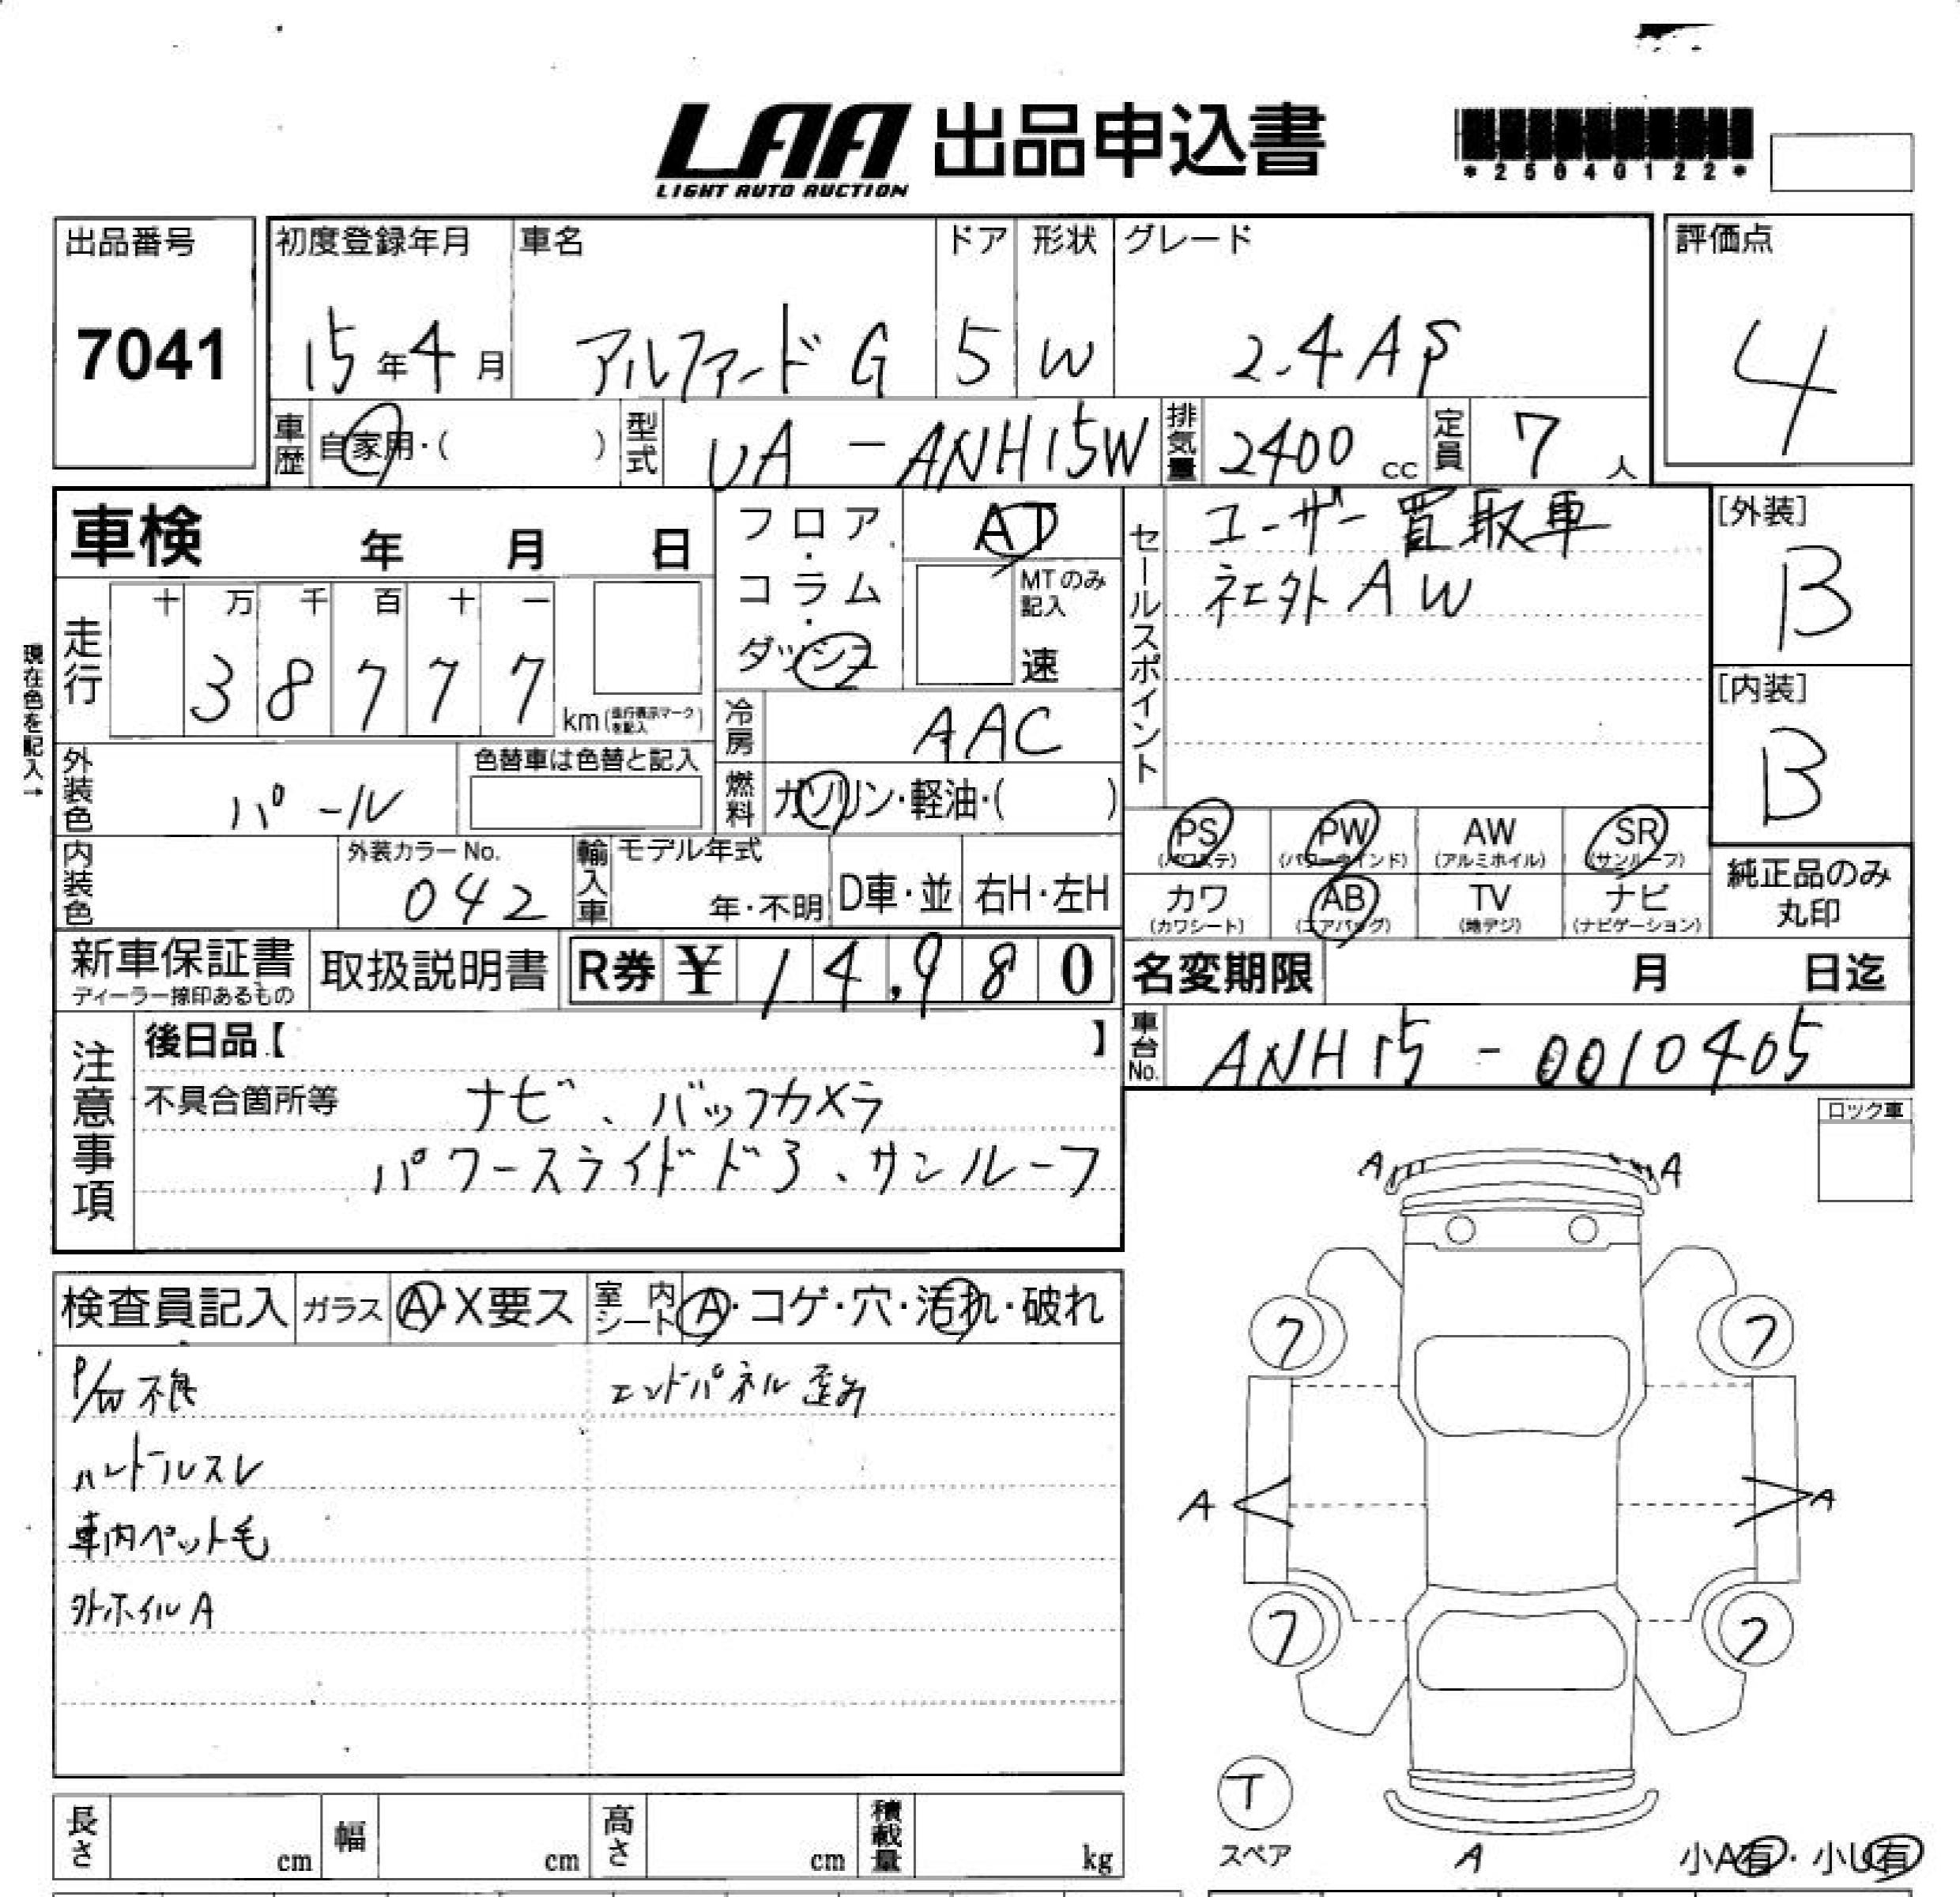 LAA 出品申込書
LIGHT AUTO AUCTION
*25040122*
出品番号
7041
初度登録年月
15年4月
車名
アルファードG
ドア
5
形状
W
グレード
2.4AS
評価点
4
車歴 自家用・( )
型式 UA-ANH15W
排気量 2400cc
定員 7人
車検 年 月 日
フロア・コラム・ダッシュ
AT
MTのみ記入
速
セールスポイント
ユーザー買取車
社外AW
[外装]
B
[内装]
B
現在色を記入→
走行
十 万 千 百 十 一
3 8 7 7 7 km(走行表示マークを記入)
冷房 AAC
外装色 パール
色替車は色替と記入
燃料 ガソリン・軽油・( )
PS (パワステ)
PW (パワーウインド)
AW (アルミホイル)
SR (サンルーフ)
カワ (カワシート)
AB (エアバッグ)
TV (地デジ)
ナビ (ナビゲーション)
純正品のみ丸印
内装色
外装カラーNo.
042
輸入車
モデル年式
年・不明
D車・並
右H・左H
新車保証書
ディーラー捺印あるもの
取扱説明書
R券 ¥ 14,980
名変期限 月 日迄
車台No. ANH15-0010405
注意事項
後日品【 】
不具合箇所等 ナビ、バックカメラ
パワースライドドア、サンルーフ
ロック車
検査員記入
ガラス A・X要ス
室内シート A・コゲ・穴・汚れ・破れ
P/W不良
エンドパネル歪み
ハンドルスレ
車内ペット毛
外ホイルA
A A
7 7
A A
7 7
T
スペア
A
小A有・小U有
長さ cm
幅 cm
高さ cm
積載量 kg